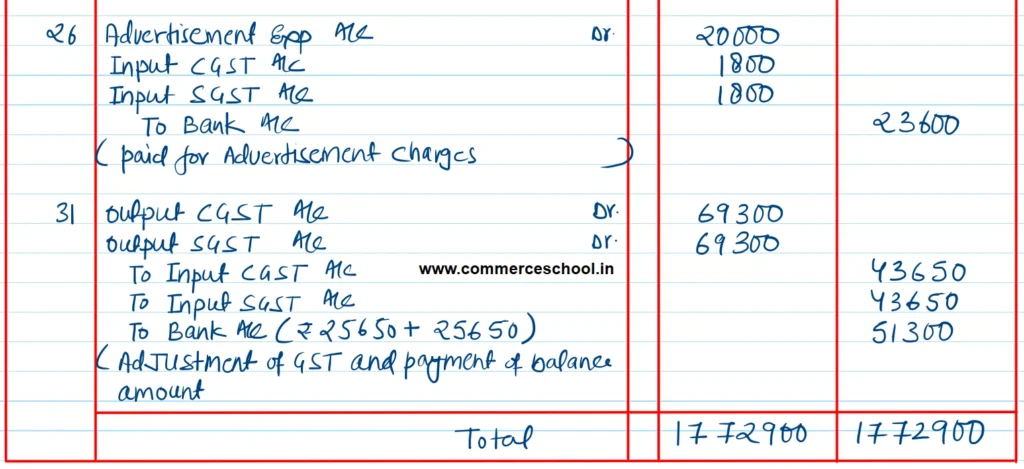 26 Advertisement Exp A/c Dr. 20000
Input CGST A/c 1800
Input SGST A/c 1800
To Bank A/c 23600
( paid for Advertisement charges )
31 output CGST A/c Dr. 69300
output SGST A/c Dr. 69300
To Input CGST A/c 43650
www.commerceschool.in
To Input SGST A/c 43650
To Bank A/c (₹ 25650 + 25650) 51300
( Adjustment of GST and payment of balance
amount
Total 1772900 1772900